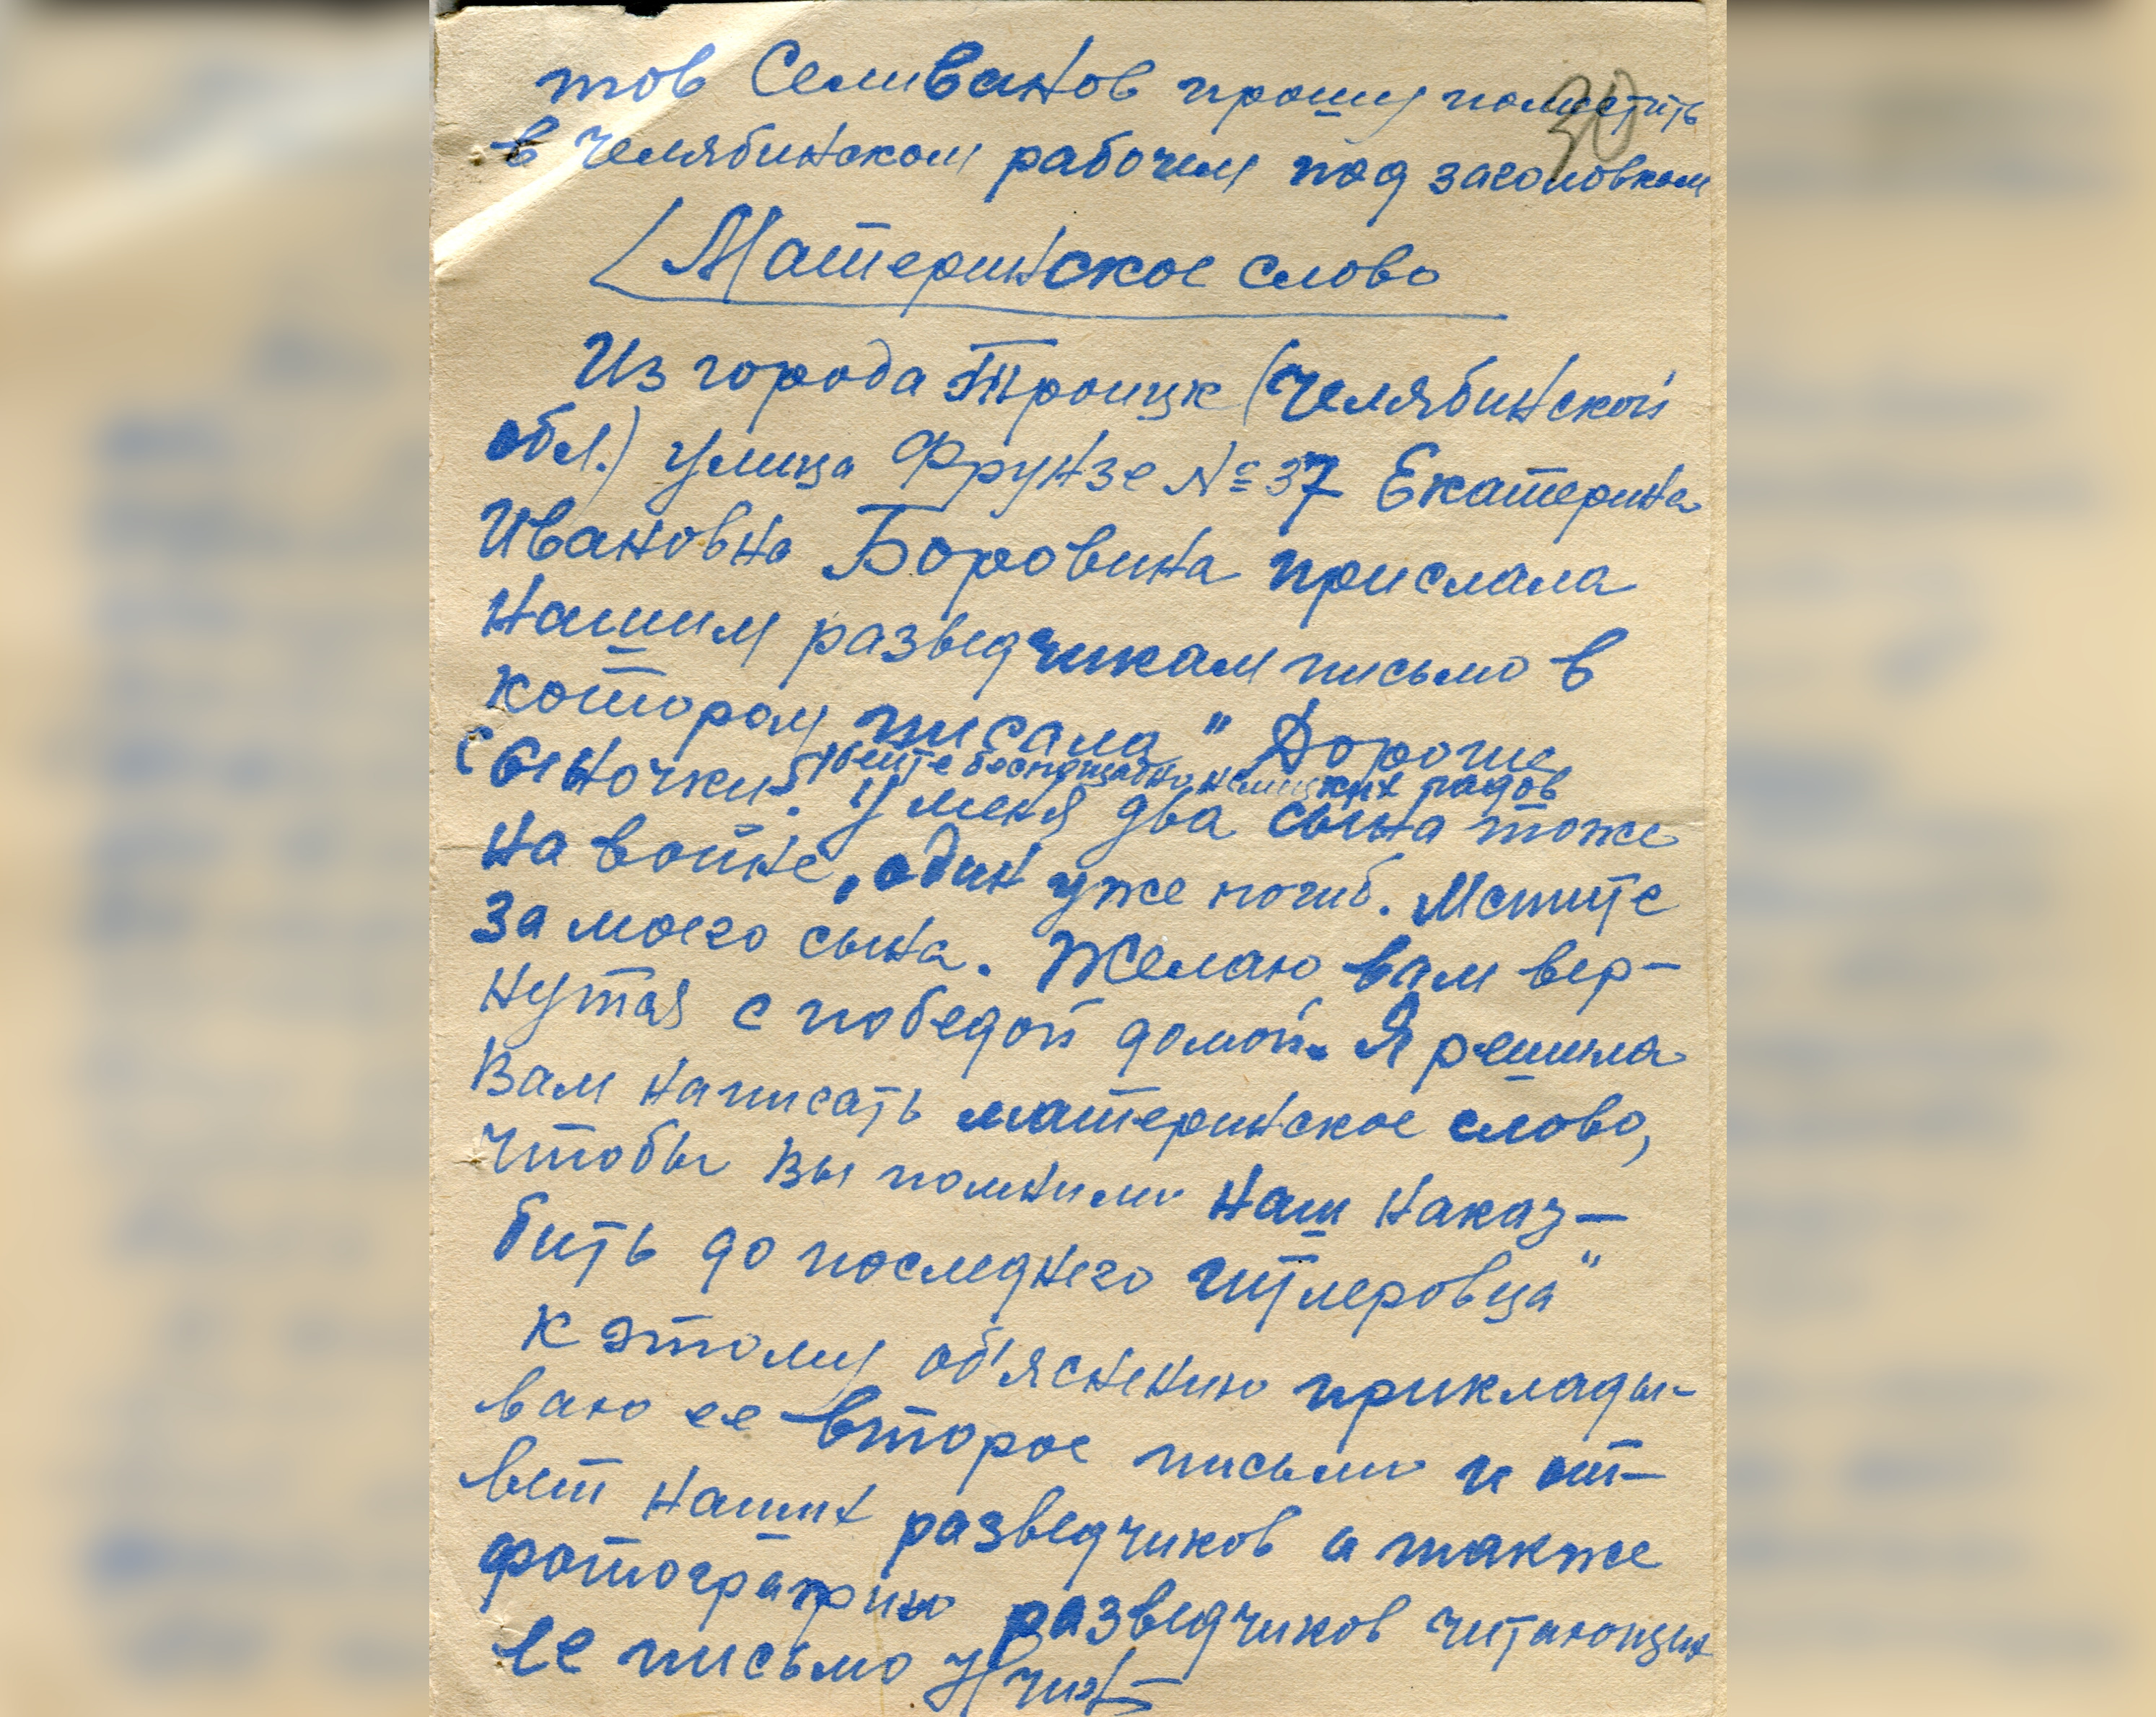 тов Селиванов прошу поместить
30
в Челябинском рабочем под заголовком
Материнское слово
Из города Троицк (Челябинской
обл.) улица Фрунзе № 37 Екатерина
Ивановна Боровина прислала
нашим разведчикам письмо в
котором писала " Дорогие
сыночки!
бейте беспощадно немецких гадов
У меня два сына тоже
на войне, один уже погиб. Мстите
за моего сына. Желаю вам вер-
нутся с победой домой. Я решила
Вам написать материнское слово,
чтобы вы помнили наш наказ —
бить до последнего гитлеровца"
К этому об'яснению приклады-
ваю ее второе письмо и от-
вет наших разведчиков а также
фотографию разведчиков читающих
ее письмо